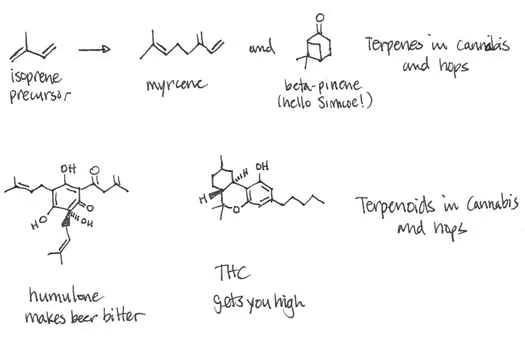 isoprene
precursor
myrcene
and
beta-pinene
(hello Simcoe!)
Terpenes in cannabis
and hops
O
OH
O
HO
O
OH
humulone
makes beer bitter
H
OH
H
O
THC
gets you high
Terpenoids in Cannabis
and hops